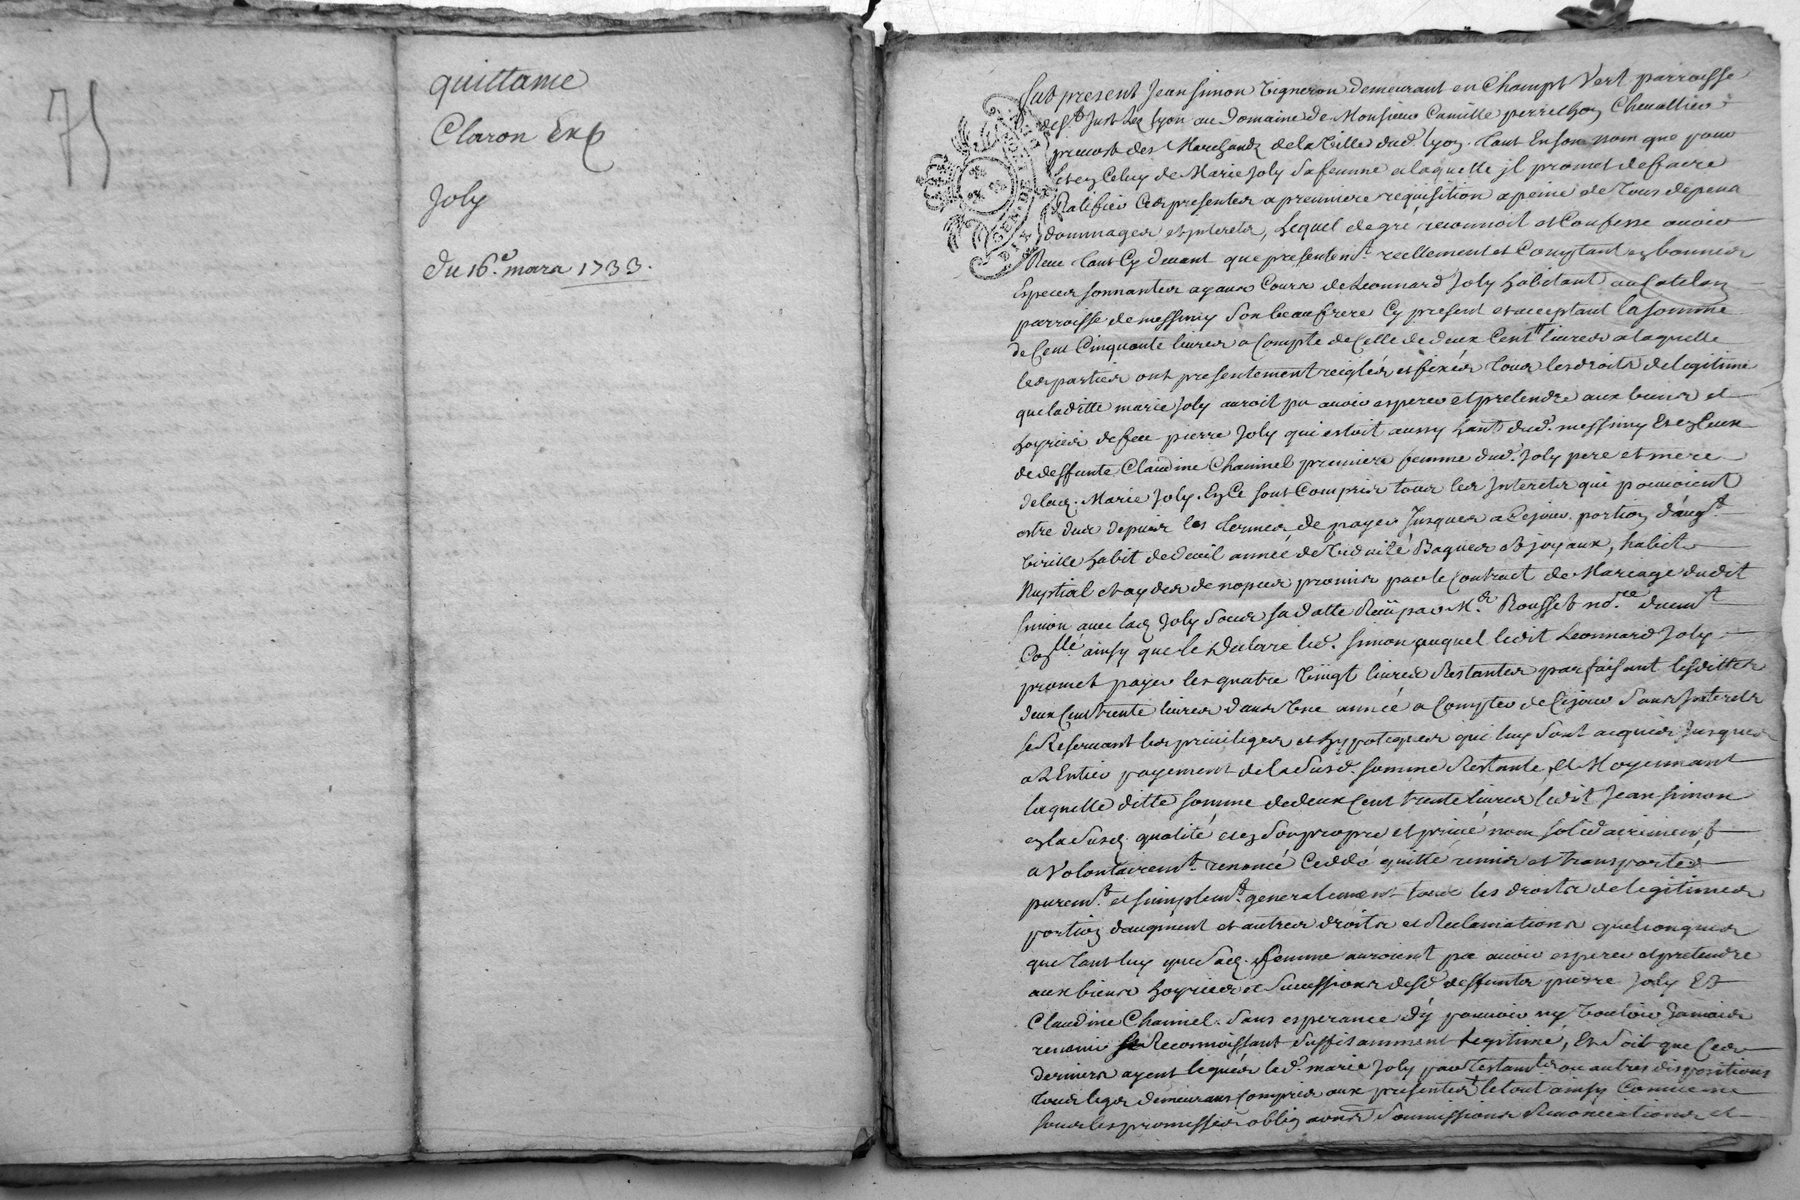 75
quittance
Claron Exp
Joly
du 16e. mars 1733.
GEN. DE LYON
Fut present Jean Simon vigneron demeurant en Champt Vert parroisse
de St. Just Lez Lyon au domaine de Monsieur Camille perrichon Chevallier
prevost des Marchands de la Ville dud. Lyon. tant En son nom que pour
et en Celuy de Marie Joly sa femme a laquelle jl promet de faire
Ratifier Ces presentes a premiere requisition a peine de tous depens
dommages et jnterets, Lequel de gré reconnoit et Confesse avoir
Receu tant Cy devant que presentemt. reellement et Comptant en bonnes
Especes sonnantes ayant Cours de Leonnard Joly habitant au Catelan
parroisse de messimy son beaufrere Cy present et acceptant la somme
de Cent Cinquante livres a Compte de Celle de deux Cent livres a laquelle
les parties ont presentement reiglés et fixés tous les droits de legitime
que laditte marie Joly auroit pu avoir esperer et pretendre aux biens et
hoyries de feu pierre Joly qui estoit aussy habt. dud. messimy Et en Ceux
de deffunte Claudine Chainel premiere femme dud. Joly pere et mere
de lad. Marie Joly. En Ce sont Compris tous les Jnterets qui pouvoient
estre dus depuis les termes de payer Jusques a Ce jour. portion d'augt.
virille habit de dueil année de viduité Bagues et joyaux, habits
Nuptial et aydes de nopces promis par le Contract de Mariage dudit
Simon avec lad. Joly sous sa datte Receu par Me. Rousset nore. duemt.
Collé. ainsy que le declare led. Simon auquel ledit Leonnard Joly
promet payer les quatre Vingt livres Restantes parfaisant lesdittes
deux Cent trente livres dans Une année a Compter de Ce jour sans Jnterets
se Reservant les privileges et hypoteques qui luy sont acquis Jusques
a L'Entier payement de la susd. somme Restante, Et Moyennant
laquelle ditte somme de deux Cent trente livres ledit Jean Simon
en la susd. qualité et en son propre et privé nom solidairement
a Volontairemt. renoncé Ceddé quitté remis et transporté
puremt. et simplemt. generalement tous les droits de legitimes
portion daugment et autres droits et Reclamations quelconques
que tant luy que sad. femme auroient pu avoir esperer et pretendre
aux biens hoyries et successions desd. deffunts pierre Joly Et
Claudine Chainel. sans esperance d'y pouvoir ny Vouloir Jamais
revenir se Reconnoissant suffisamment legitimé, Et soit que Ces
derniers ayent legués led. marie Joly par testamts. ou autres dispositions
tous legs demeurans Compris aux presentes. le tout ainsy Convenu
sous les promesses obligaons. soumissions Renonciations et